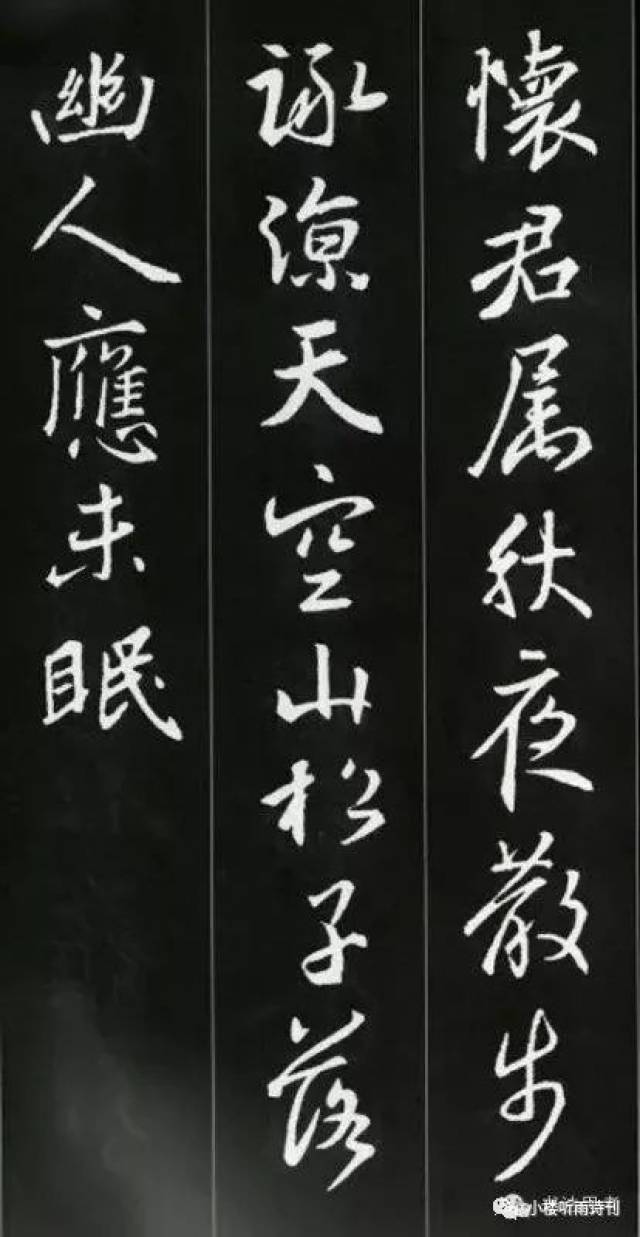 懷君属秋夜散步
詠涼天空山松子落
幽人應未眠
小楼听雨诗刊